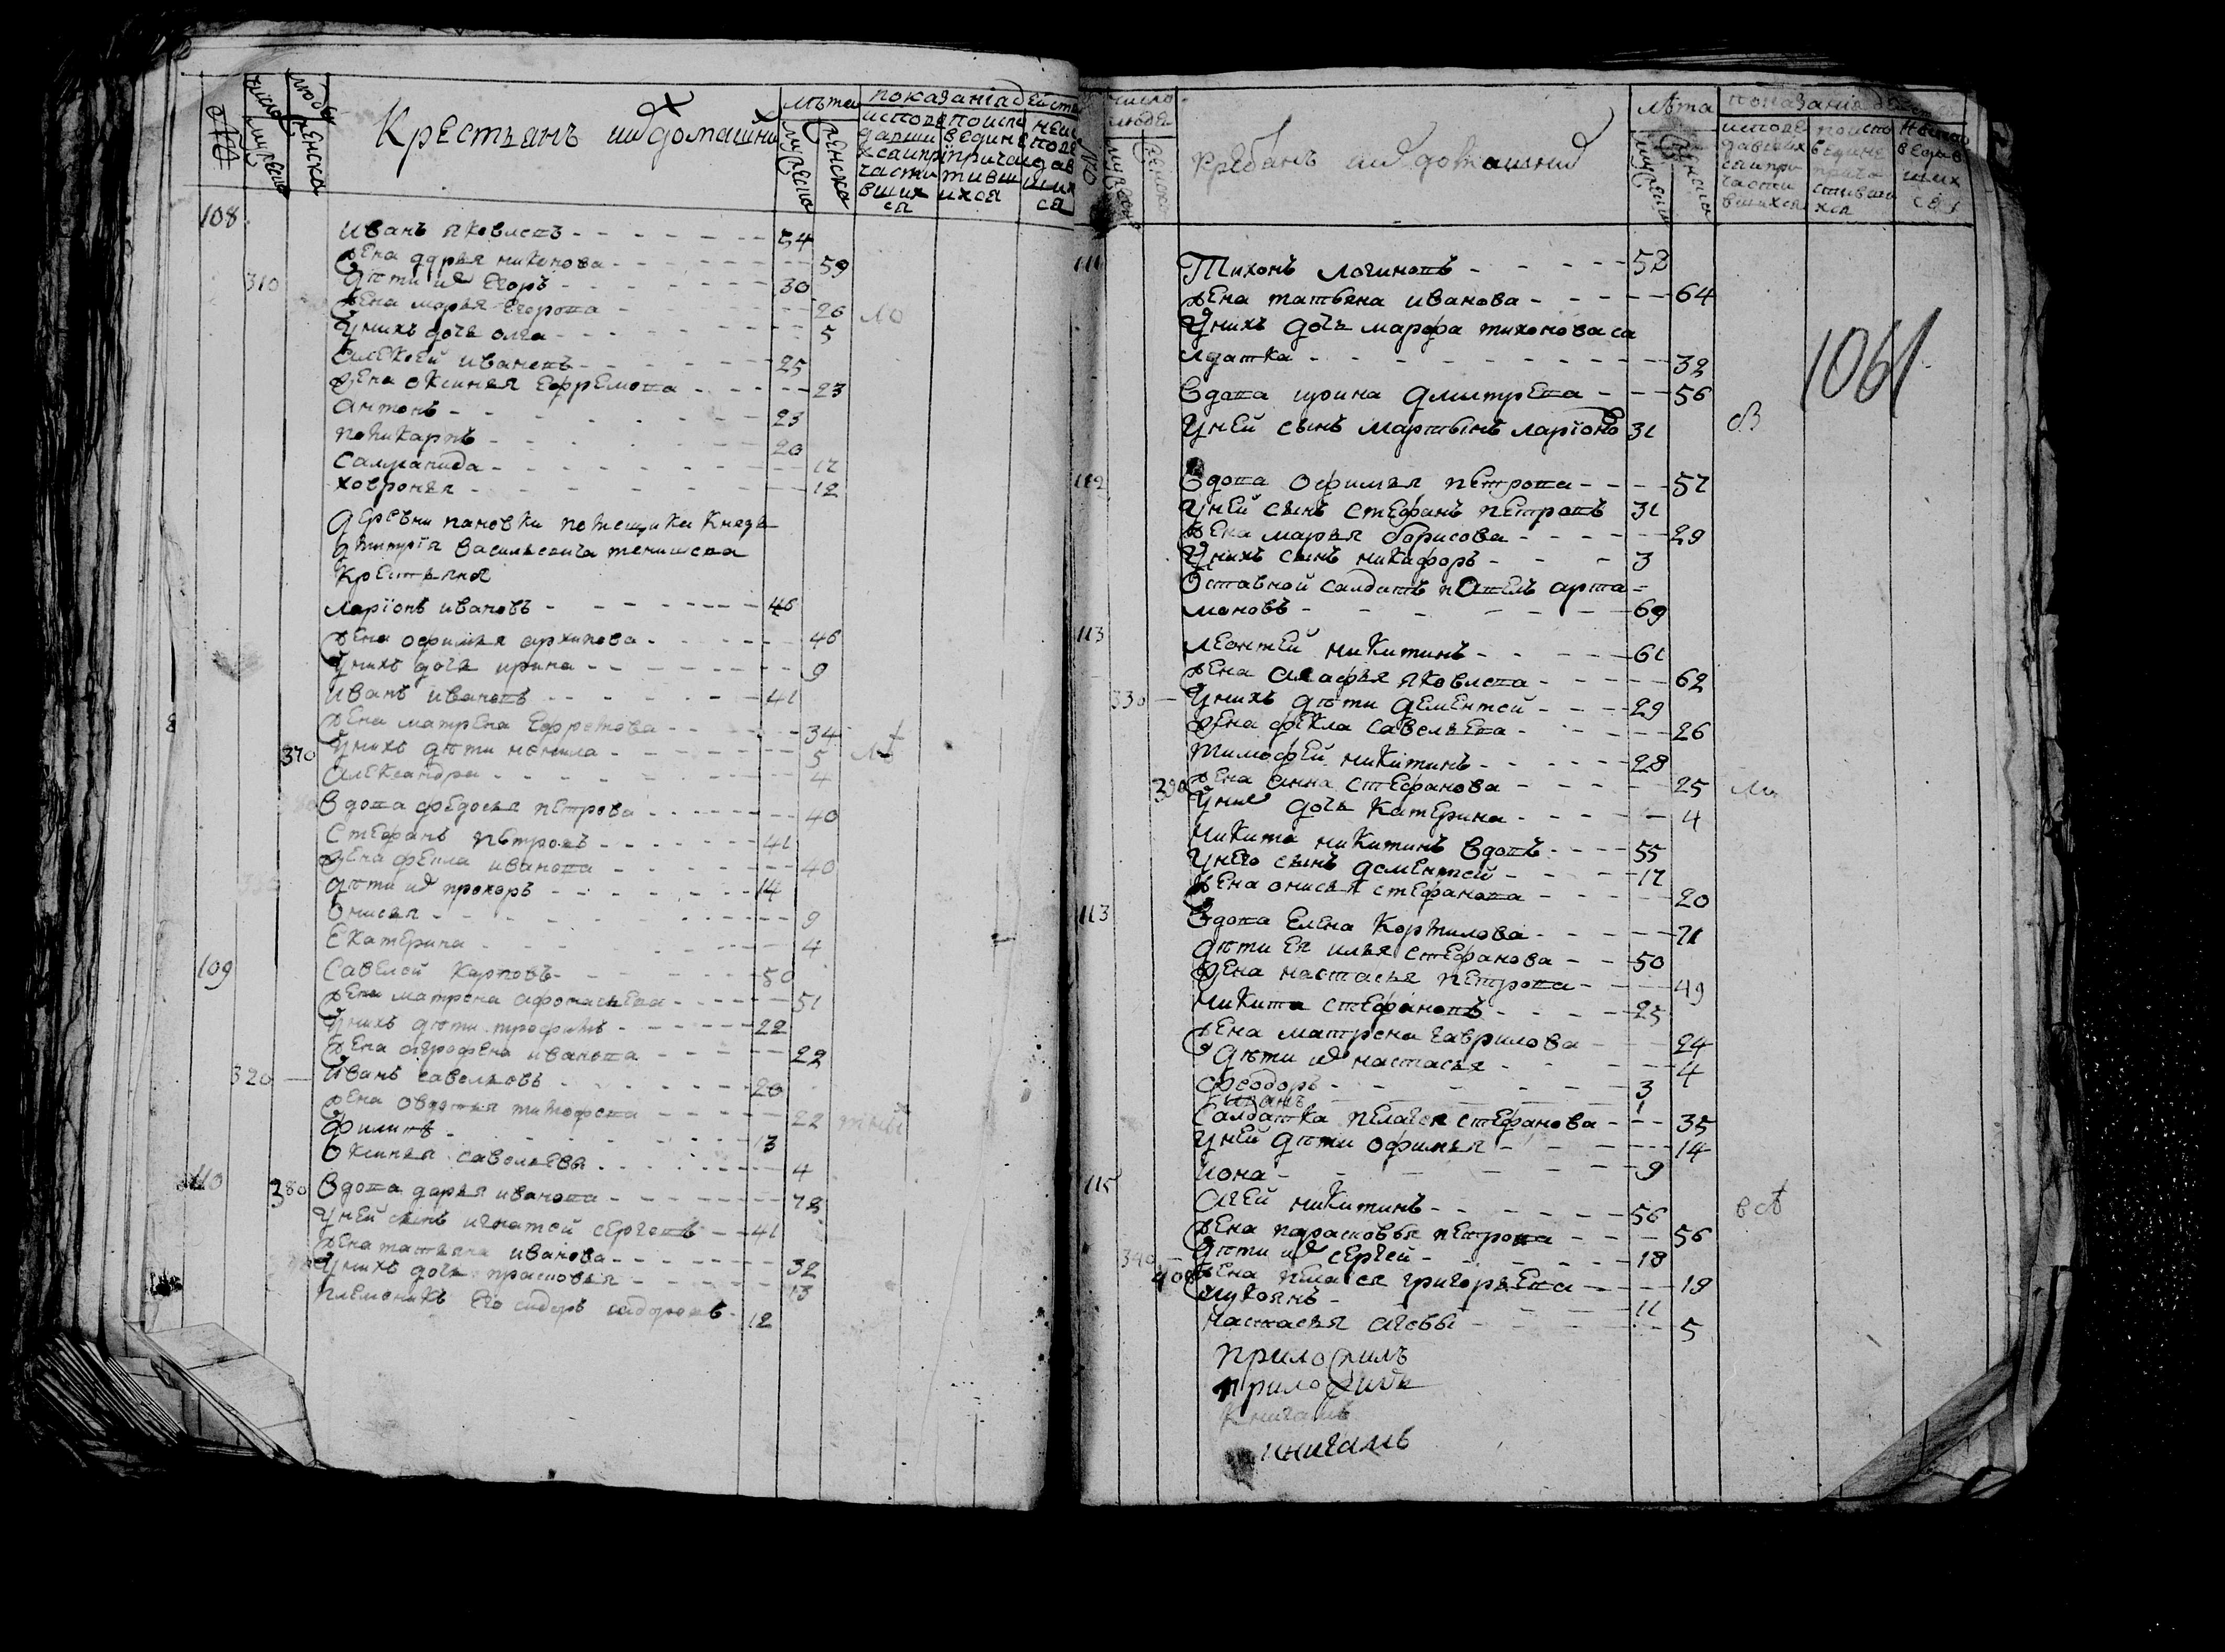 число людей
лѣта показанія дейст
Крестьянъ ихъ домашни
108 иванъ яковлевъ 54
жена дарья никонова 59
310 дѣти их Егоръ 30
жена марья Егорова 26
У нихъ дочь олга 5
Алексей ивановъ 25
жена оксинья Ефремова 23
Антонъ 23
поликарпъ 20
Саламанида
ховронья 12
деревни пановки помещика князя
дмитрія васильевича тенишева
крестьяня
ларіонъ ивановъ 46
жена офимья архипова 46
У нихъ дочь ирина 9
иванъ ивановъ 41
жена матрена Ефремова 34
370 У нихъ дѣти ненила 5
Александра 4
вдова федосья петрова 40
Стефанъ петровъ 41
жена фекла иванова 40
дѣти их прохоръ 14
Онисья 9
Екатерина 4
109 Савелей карповъ 50
жена матрена афонасьева 51
У нихъ дѣти трофимъ 22
жена огрофена иванова 22
320 иванъ савельевъ 20
жена овдотья тимофеева 22
филипъ 13
Оксинья савольева 4
110 380 вдова дарья иванова 78
У ней сынъ игнатей сергеевъ 41
жена татьяна иванова 32
У нихъ дочь прасковья 13
племеникъ Его сидоръ сидоровъ 12
число людей
лѣта
ихъ домашних
1061
111 Тихонъ логиновъ 58
жена татьяна иванова 64
У нихъ дочь марфа тихонова са
лдатка 32
вдова ирина дмитрева 56
У ней сынъ мартынъ ларіоно 31
112 вдова офимья петрова 57
У ней сынъ стефанъ петровъ 31
жена марья борисова 29
У нихъ сынъ никафоръ 3
Оставной салдатъ павелъ арта=
моновъ 69
113 леонтей никитинъ 61
жена агафья яковлева 62
330 У нихъ дѣти дементей 29
жена фекла савельева 26
тимофей никитинъ 28
390 жена анна стефанова 25
У них дочь катерина 4
никита никитинъ вдовъ 55
У него сынъ дементей 17
жена онисья стефанова 20
113 вдова Елена Кормилова 71
дѣти Ея илья стефанова 50
жена настасья петрова 49
никита стефановъ 25
жена матрена гаврилова 24
дѣти их настасья 4
феодоръ 3
иванъ 1
Салдатка пелагея стефанова 35
У ней дѣти офимья 14
иона 9
115 Агей никитинъ 56
жена парасковья петрова 56
340 дѣти их сергей 18
400 жена пелагея григорьева 19
лукоянъ 11
настасья агевы 5
приложилъ
приложилъ
книгамъ
книгамъ